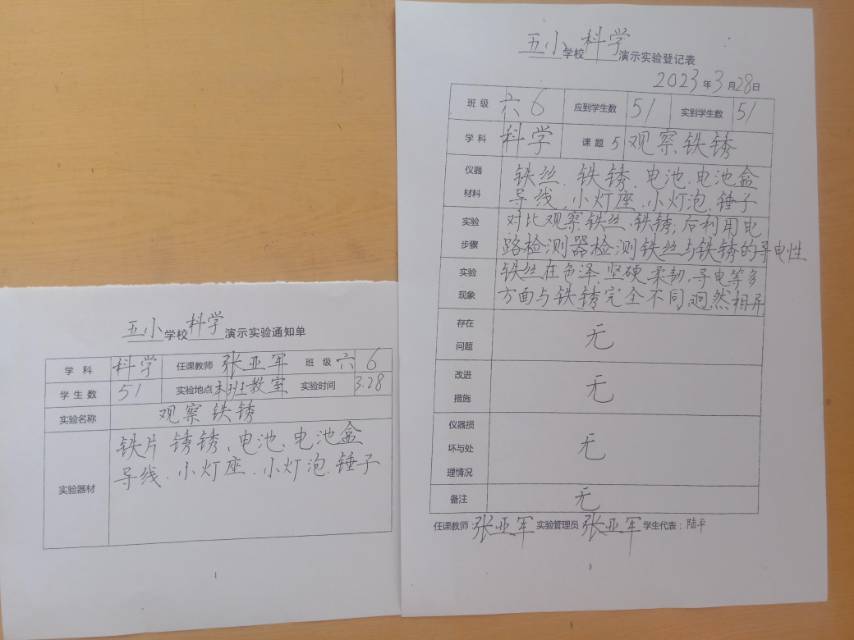 五小学校科学演示实验通知单
学科 科学 任课教师 张亚军 班级 六6
学生数 51 实验地点 本班教室 实验时间 3.28
实验名称 观察铁锈
铁片 锈锈、电池、电池盒
实验器材 导线、小灯座、小灯泡、锤子
1
五小学校科学演示实验登记表
2023年3月28日
班级 六6 应到学生数 51 实到学生数 51
学科 科学 课题 5 观察铁锈
仪器 铁丝、铁锈、电池、电池盒
材料 导线、小灯座、小灯泡、锤子
实验 对比观察铁丝、铁锈;后利用电
步骤 路检测器检测铁丝与铁锈的导电性
实验 铁丝在色泽、坚硬、柔韧、导电等多
现象 方面与铁锈完全不同,迥然相异
存在
问题 无
改进
措施 无
仪器损
坏与处 无
理情况
备注 无
任课教师 张亚军 实验管理员 张亚军 学生代表:陆平